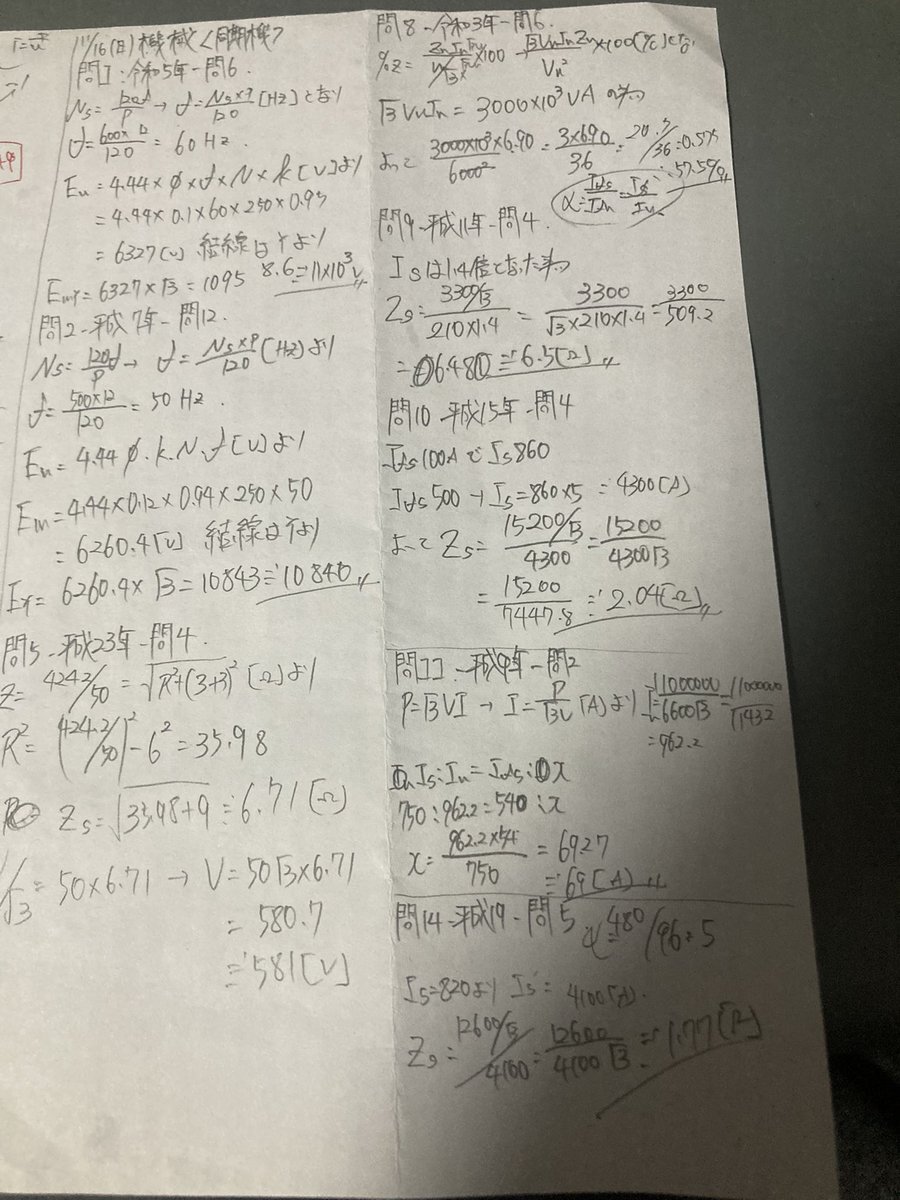 11/16(日) 機械<同期機>
問1:令和5年-問6
Ns=120f/P → f=Ns×P/120 [HZ] となり
f=600×12/120 = 60 Hz.
Eu = 4.44×φ×f×N×k[V]より
= 4.44×0.1×60×250×0.95
= 6327[V] 結線はYより
= 6327×√3 = 1095 8.6≒11×10³V
問2-平成7年-問12.
Ns=120f/P → f=Ns×P/120 [Hz]より
f=500×12/120 = 50 Hz.
Eu = 4.44 φ.k.N.f[V]より
Em=4.44×0.12×0.94×250×50
= 6260.4[V] 結線はYより
EY= 6260.4×√3=10843≒10840
問5-平成23年-問4.
Z= 424.2/50 = √R²+(3+3)² [Ω]より
R²= (424.2/50)²-6²=35.98
Zs=√35.98+9 ≒6.71[Ω]
V/√3 = 50×6.71 → V=50√3×6.71
= 580.7
≒581[V]
問8-令和3年-問6.
√3VnIn = 3000×10³VA の為
よって 3000×10³×6.90/6000² = 3×6.90/36 = 20.7/36=0.575
∴57.5%
α=Ifs/Ifn=Is/In
問9-平成11年-問4.
Isは1.4倍となった為
Zs=3300/√3/210×1.4 = 3300/√3×210×1.4 = 3300/509.2
= 6.480≒6.5[Ω]
問10-平成15年-問4
Ifs100Aで Is860
Ifs500 → Is=860×5 =4300[A]
よって Zs= 15200/√3/4300 = 15200/4300√3
= 15200/7447.8 ≒2.04[Ω]
問11-平成9年-問2
P=√3VI → I=P/√3V [A]より I=11000000/6600√3=11000000/11432
=962.2
Is:In=Ifs:x
750:962.2=540:x
x= 962.2×54/750 = 69.27
≒69[A]
問14-平成19-問5 480/96=5
Is=820より Is'= 4100[A].
Zs=12600/√3/4100=12600/4100√3≒1.77[Ω]